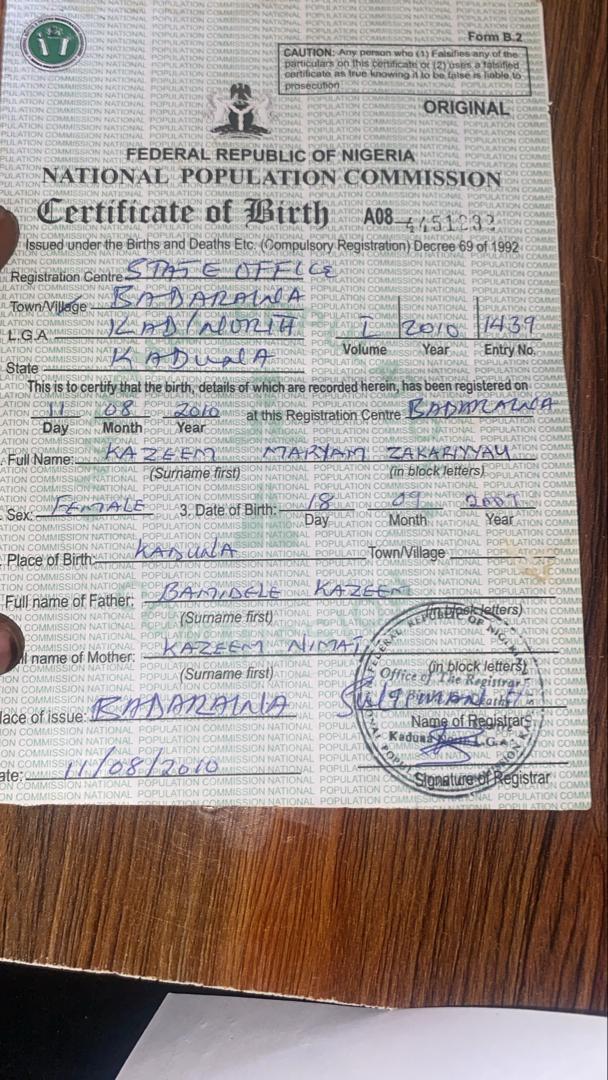 Form B.2
CAUTION: Any person who (1) Falsifies any of the
particulars on this certificate or (2) uses a falsified
certificate as true knowing it to be false is liable to
prosecution
ORIGINAL
FEDERAL REPUBLIC OF NIGERIA
NATIONAL POPULATION COMMISSION
Certificate of Birth A08 4451232
Issued under the Births and Deaths Etc. (Compulsory Registration) Decree 69 of 1992
Registration Centre STATE OFFICE
Town/Village BADARAWA
L.G.A KAD/NORTH I 2010 1439
Volume Year Entry No.
State KADUNA
This is to certify that the birth, details of which are recorded herein, has been registered on
11 08 2010 at this Registration Centre BADARAWA
Day Month Year
Full Name: KAZEEM MARYAM ZAKARIYYAU
(Surname first) (in block letters)
Sex: FEMALE 3. Date of Birth: 18 09 2007
Day Month Year
Place of Birth: KADUNA Town/Village
Full name of Father: BAMIDELE KAZEEM
(Surname first) (in block letters)
name of Mother: KAZEEM NIMAT
(Surname first) (in block letters)
lace of issue: BADARAWA
Name of Registrar
ate: 11/08/2010
Signature of Registrar
Office of The Registrar
Kaduna L.G.A